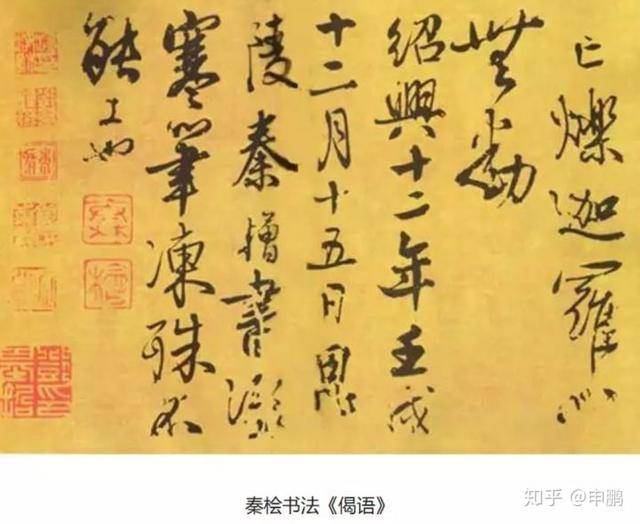 亡爍迦羅心
無動
紹興十二年壬戌
十二月十五日
陵秦檜書深
寒筆凍殊不
能工也
秦桧书法《偈语》
知乎 @申鹏